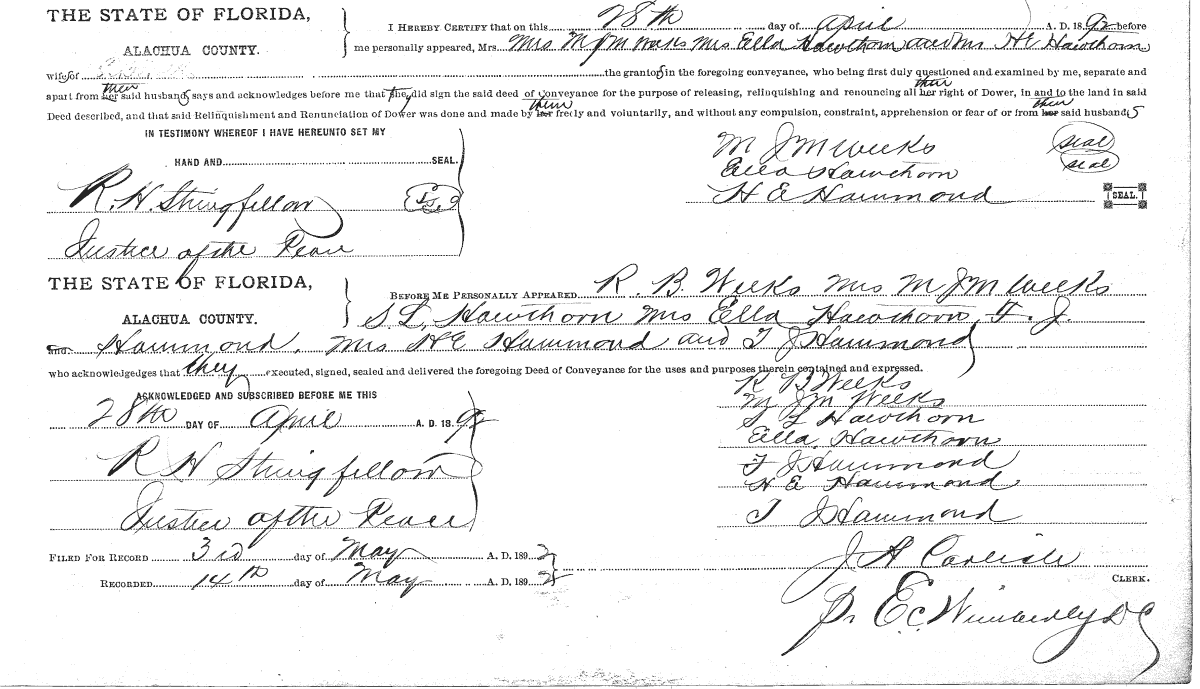 THE STATE OF FLORIDA,
ALACHUA COUNTY.
I HEREBY CERTIFY that on this 28th day of April A. D. 1892 before
me personally appeared, Mrs. Mrs M J M Weeks Mrs Ella Hawthorn and Mrs H E Hawthorn
wifes of the grantors in the foregoing conveyance, who being first duly questioned and examined by me, separate and
apart from her their said husbands says and acknowledges before me that they did sign the said deed of Conveyance for the purpose of releasing, relinquishing and renouncing all her their right of Dower, in and to the land in said
Deed described, and that said Relinquishment and Renunciation of Dower was done and made by her them freely and voluntarily, and without any compulsion, constraint, apprehension or fear of or from her their said husbands
IN TESTIMONY WHEREOF I HAVE HEREUNTO SET MY
HAND AND SEAL.
R. H. Stringfellow
Justice of the Peace
M J M Weeks seal
Ella Hawthorn seal
H E Hammond SEAL.
THE STATE OF FLORIDA,
ALACHUA COUNTY.
BEFORE ME PERSONALLY APPEARED R. B. Weeks Mrs M J M Weeks
S L, Hawthorn Mrs Ella Hawthorn, F. J.
and Hammond, Mrs H E Hammond and T J Hammond
who acknowledgedges that they executed, signed, sealed and delivered the foregoing Deed of Conveyance for the uses and purposes therein contained and expressed.
ACKNOWLEDGED AND SUBSCRIBED BEFORE ME THIS
28th DAY OF April A. D. 1892
R H Stringfellow
Justice of the Peace
R B Weeks
M J M Weeks
S L Hawthorn
Ella Hawthorn
F J Hammond
H E Hammond
T J Hammond
FILED FOR RECORD 3rd day of May A. D. 1892
RECORDED 14th day of May A. D. 1892
J. A Carlisle
CLERK.
Pr E. C. Wimberly D C